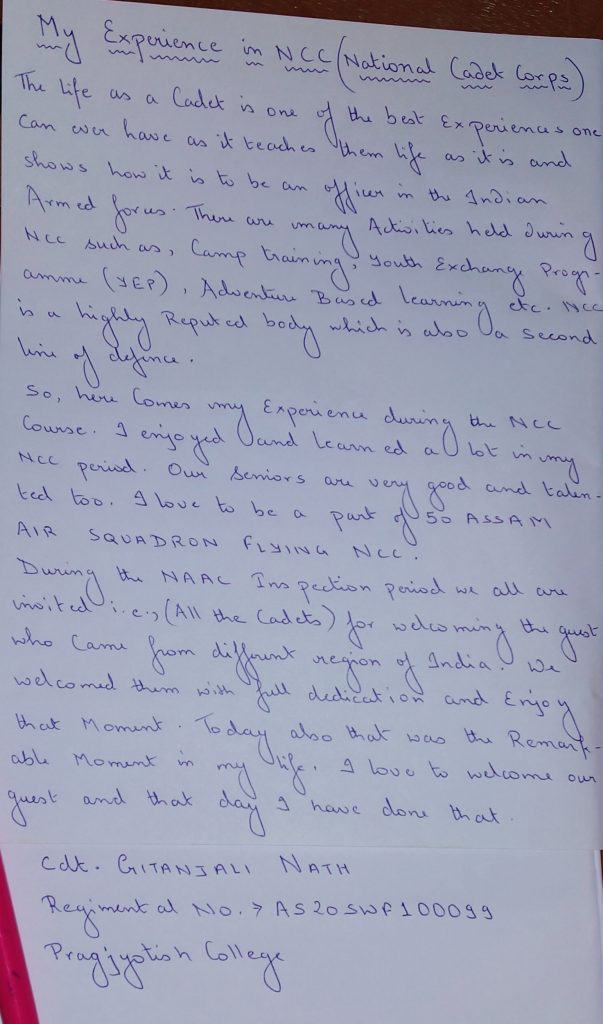 My Experience in NCC (National Cadet Corps)
The life as a Cadet is one of the best Experiences one
Can ever have as it teaches them life as it is and
shows how it is to be an officer in the Indian
Armed forces. There are many Activities held during
NCC such as, Camp training, Youth Exchange Progr-
amme (YEP), Adventure Based learning etc. NCC
is a highly Reputed body which is also a second
line of defence.
So, here Comes my Experience during the NCC
Course. I enjoyed and learned a lot in my
NCC period. Our Seniors are very good and talen-
ted too. I love to be a part of 50 ASSAM
AIR SQUADRON FLYING NCC.
During the NAAC Inspection period we all are
invited i.e., (All the Cadets) for welcoming the guest
who Came from different region of India. We
welcomed them with full dedication and Enjoy
that Moment. Today also that was the Remark-
able Moment in my life. I love to welcome our
guest and that day I have done that.
Cdt. GITANJALI NATH
Regimental No. → AS20SWF100099
Pragjyotish College